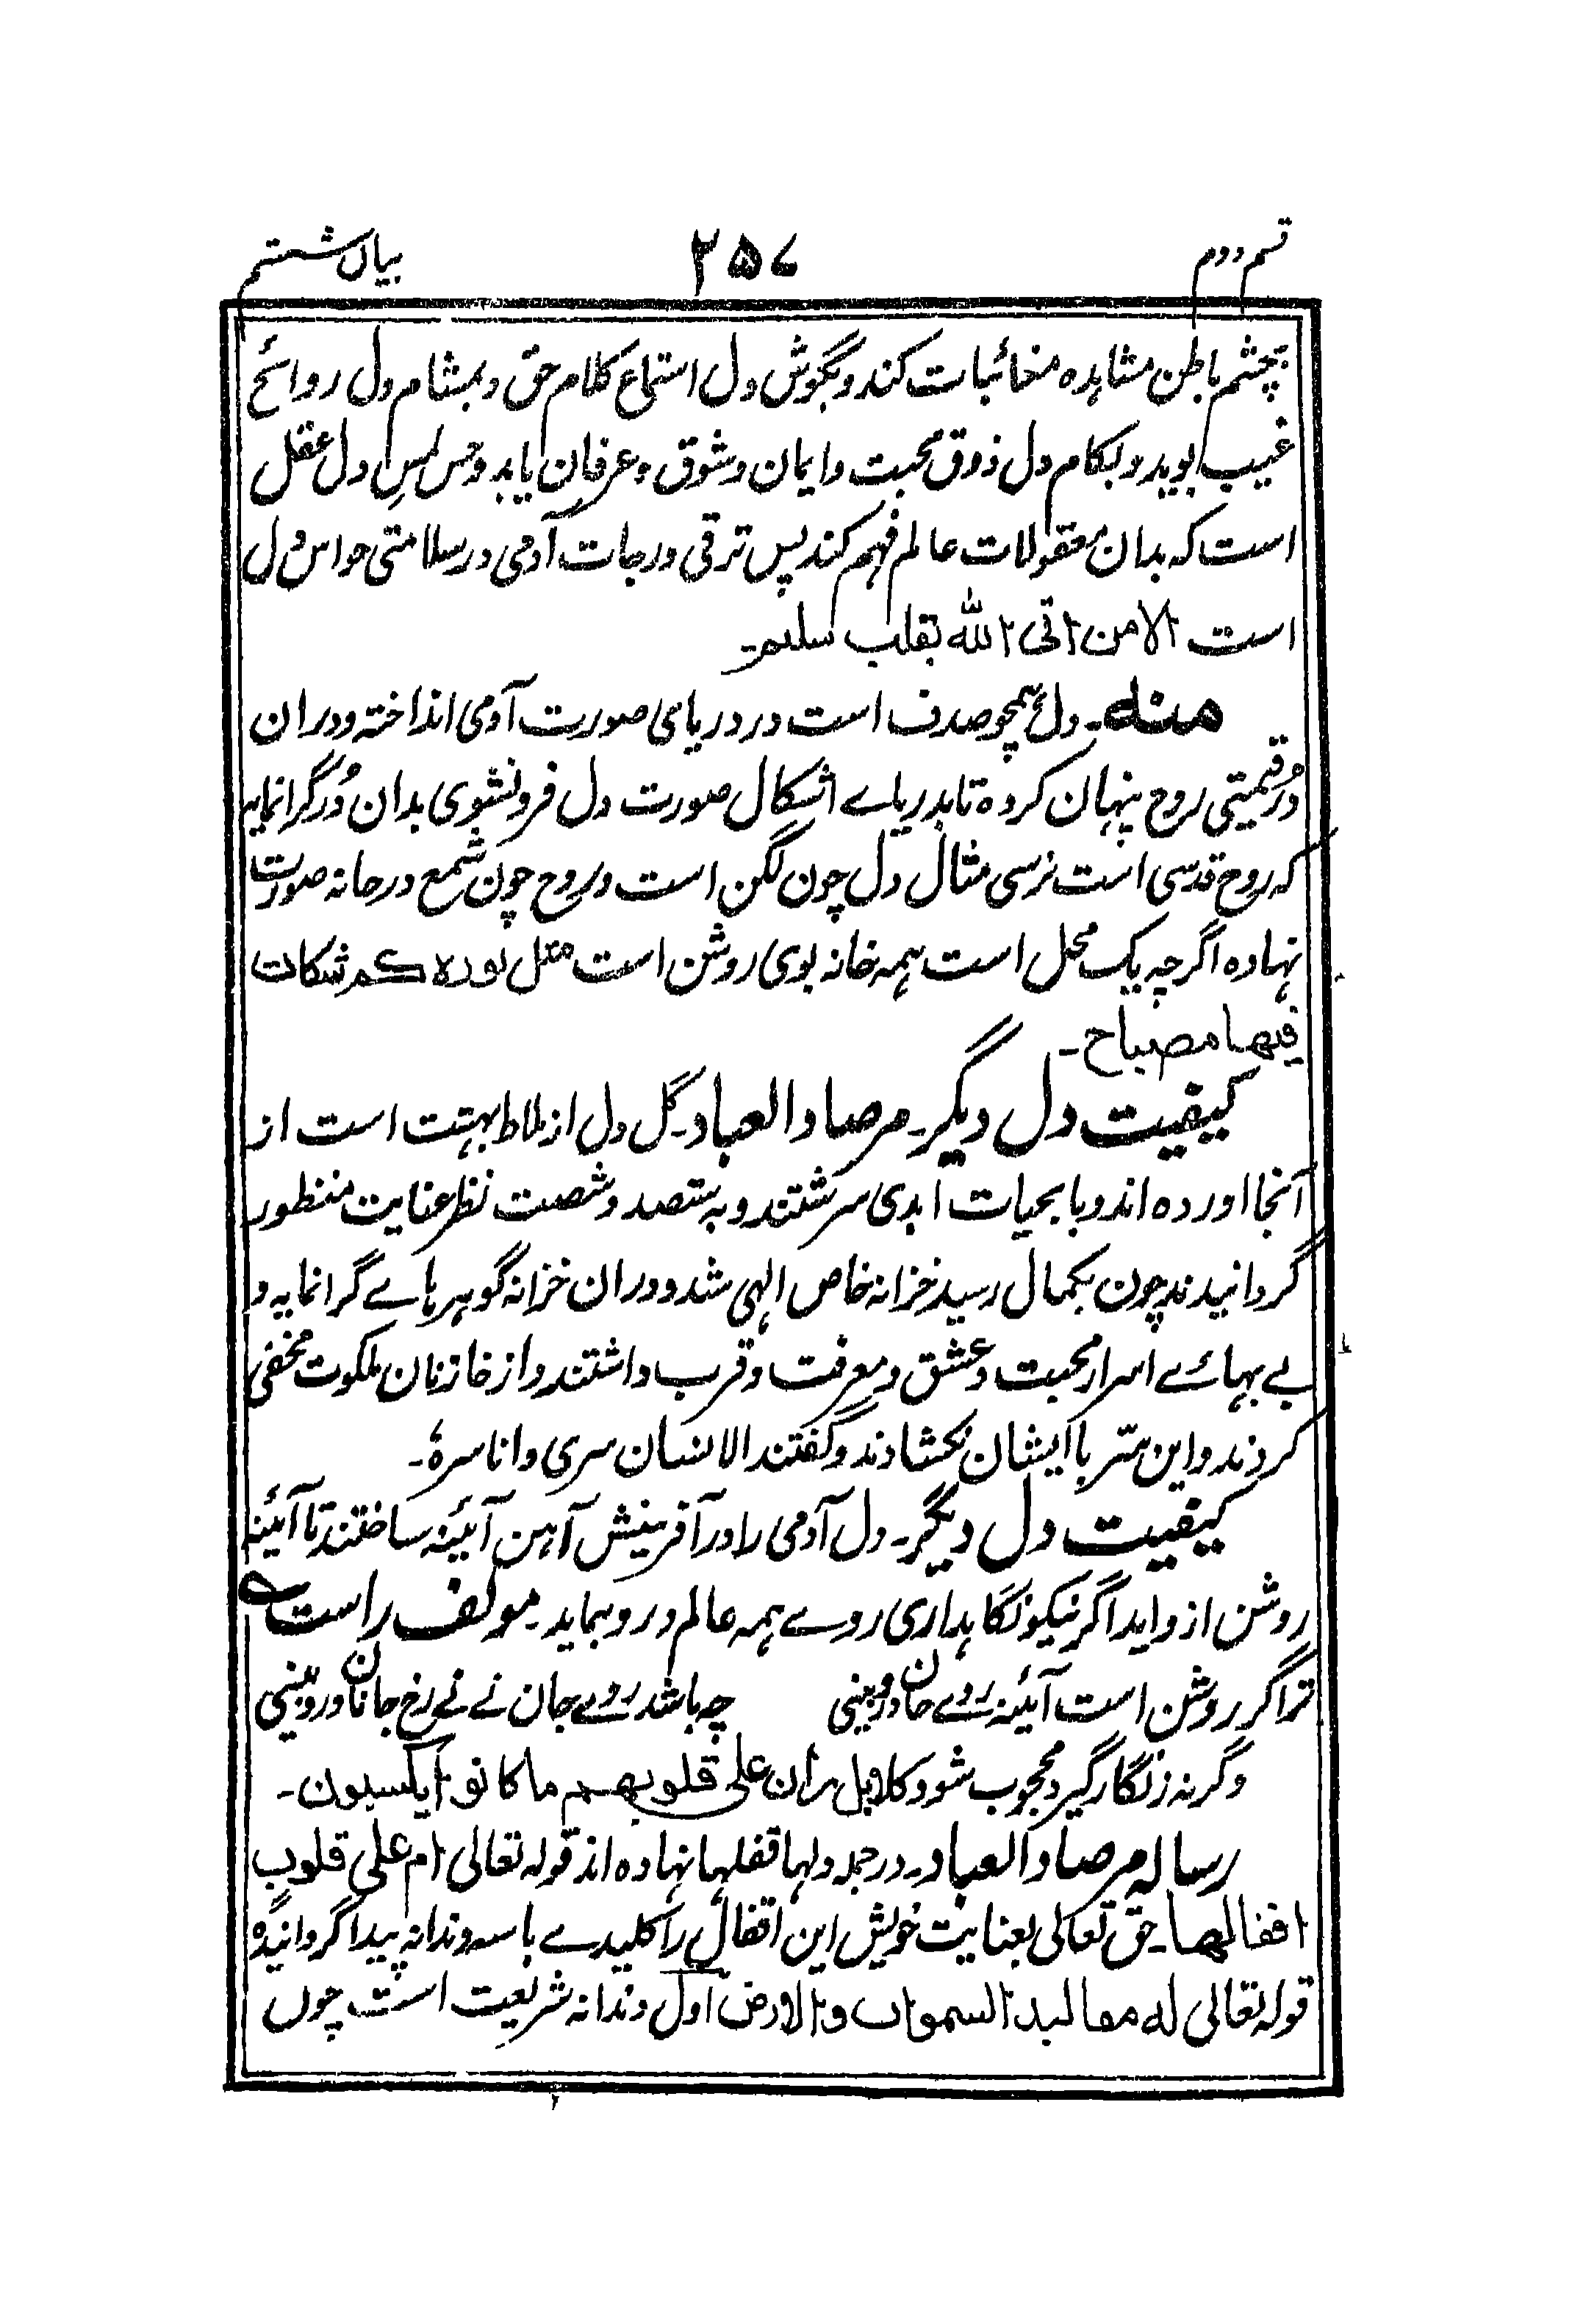 قسم دوم ۲۵۷ بیان ششتم
بچشم باطن مشاہدہ مغائبات کند و بگوش دل استماع کلام حق و بمشام دل روائح
غیب بوید و بکام دل ذوق محبت و ایمان و شوق و عرفان یابد و حس لمسِ دل عقل
است کہ بدان معقولات عالم فہم کند پس ترقی درجات آدمی در سلامتی حواس دل
است الامن اتی الله بقلب سلیم۔
منه۔ دل ہمچو صدف است در دریای صورت آدمی انداختہ و دران
دُر قیمتی روح پنہان کردہ تا بدریاے اشکال صورت دل فرو نشوی بدان دُر گرانمایہ
کہ روح قدسی است نرسی مثال دل چون لگن است و روح چون شمع در خانہ صورت
نہادہ اگرچہ یک محل است ہمہ خانہ بوی روشن است مثل نوره کمشکات
فیها مصباح۔
کیفیت دل دیگر۔ مرصاد العباد۔ گل دل از ملاط بہشت است از
آنجا اوردہ اند و بابحیات ابدی سرشتند و بہ ستصد و شصت نظر عنایت منظور
گردانیدند چون بکمال رسید خزانہ خاص الہی شد و دران خزانہ گوہرہاے گرانمایہ و
بے بہائے اسرار محبت و عشق و معرفت و قرب داشتند و از خازنان ملکوت مخفی
کردند و این ستر با ایشان نکشادند و گفتند الانسان سری و انا سرهٗ۔
کیفیت دل دیگر۔ دل آدمی را در آفرینش آہن آئینہ ساختند تا آئینہ
روشن ازو اید اگر نیکو نگاہداری روے ہمہ عالم در و بنماید۔ مولف راست
ترا گر روشن است آئینہ روے جان درو بینی چہ باشد روے جان نے نے رخ جانان درو بینی
وگرنہ زنگار گیرد محجوب شود کلا بل ران علی قلوبهم ما کانوا یکسبون۔
رسالہ مرصاد العباد۔ در جملہ دلہا قفلہا نہادہ اند قولہ تعالی ام علی قلوب
اقفالها۔ حق تعالی بعنایت خویش این اقفال را کلیدے با سہ دندانہ پیدا گردانیدہ
قولہ تعالی له مقالید السموات والارض اول دندانہ شریعت است چوں